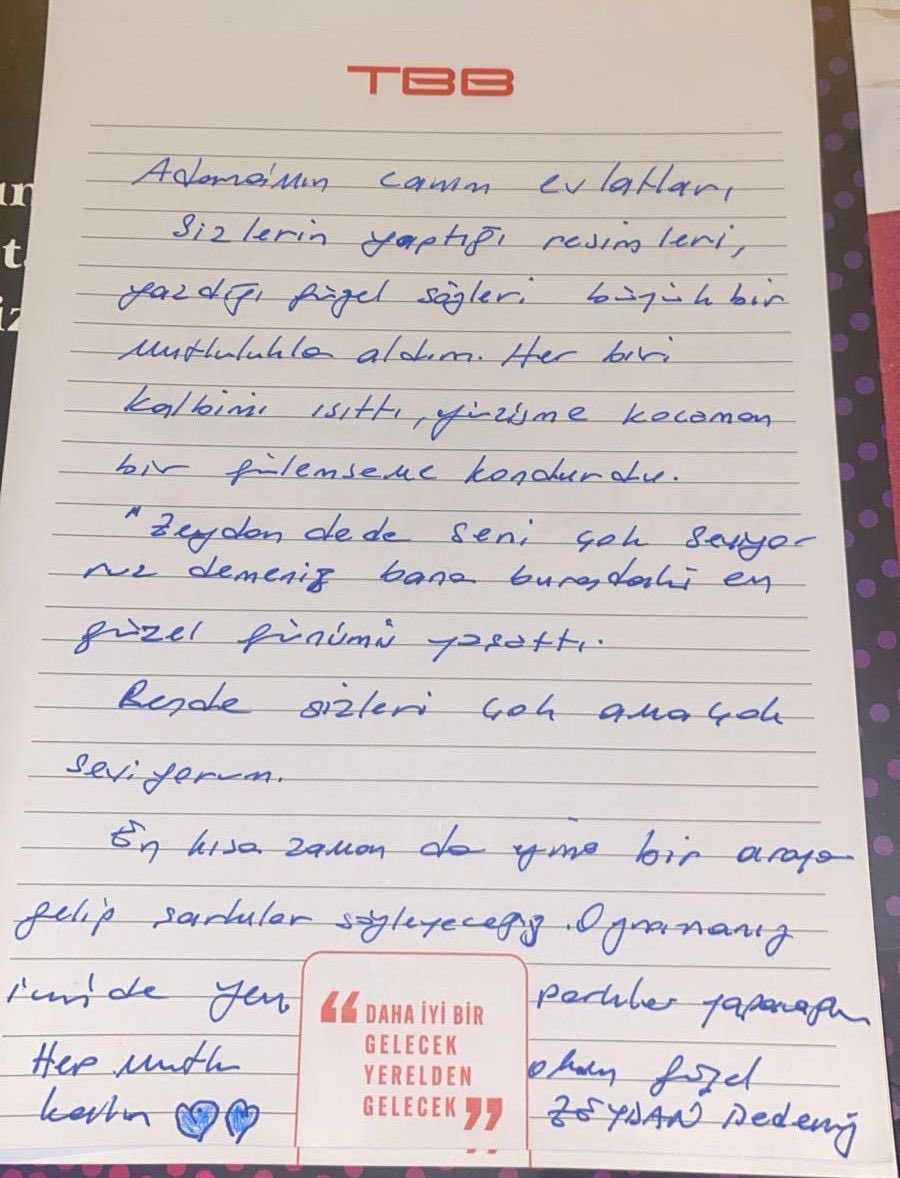 TBB
Adana'nın canım evlatları,
Sizlerin yaptığı resimleri,
yazdığı güzel sözleri büyük bir
mutlulukla aldım. Her biri
kalbimi ısıttı, yüzüme kocaman
bir gülemseme kondurdu.
"Zeydan dede seni çok seviyor-
uz demeniz bana buradaki en
güzel günümü yaşattı.
Bende sizleri çok ama çok
seviyorum.
En kısa zaman da yine bir araya
gelip şarkılar söyleyeceğiz. Oynamanız
için de yeni parklar yapacağım
Hep mutlu olun güzel
kalın ZEYDAN Dedeniz
“ DAHA İYİ BİR
GELECEK
YERELDEN
GELECEK ”